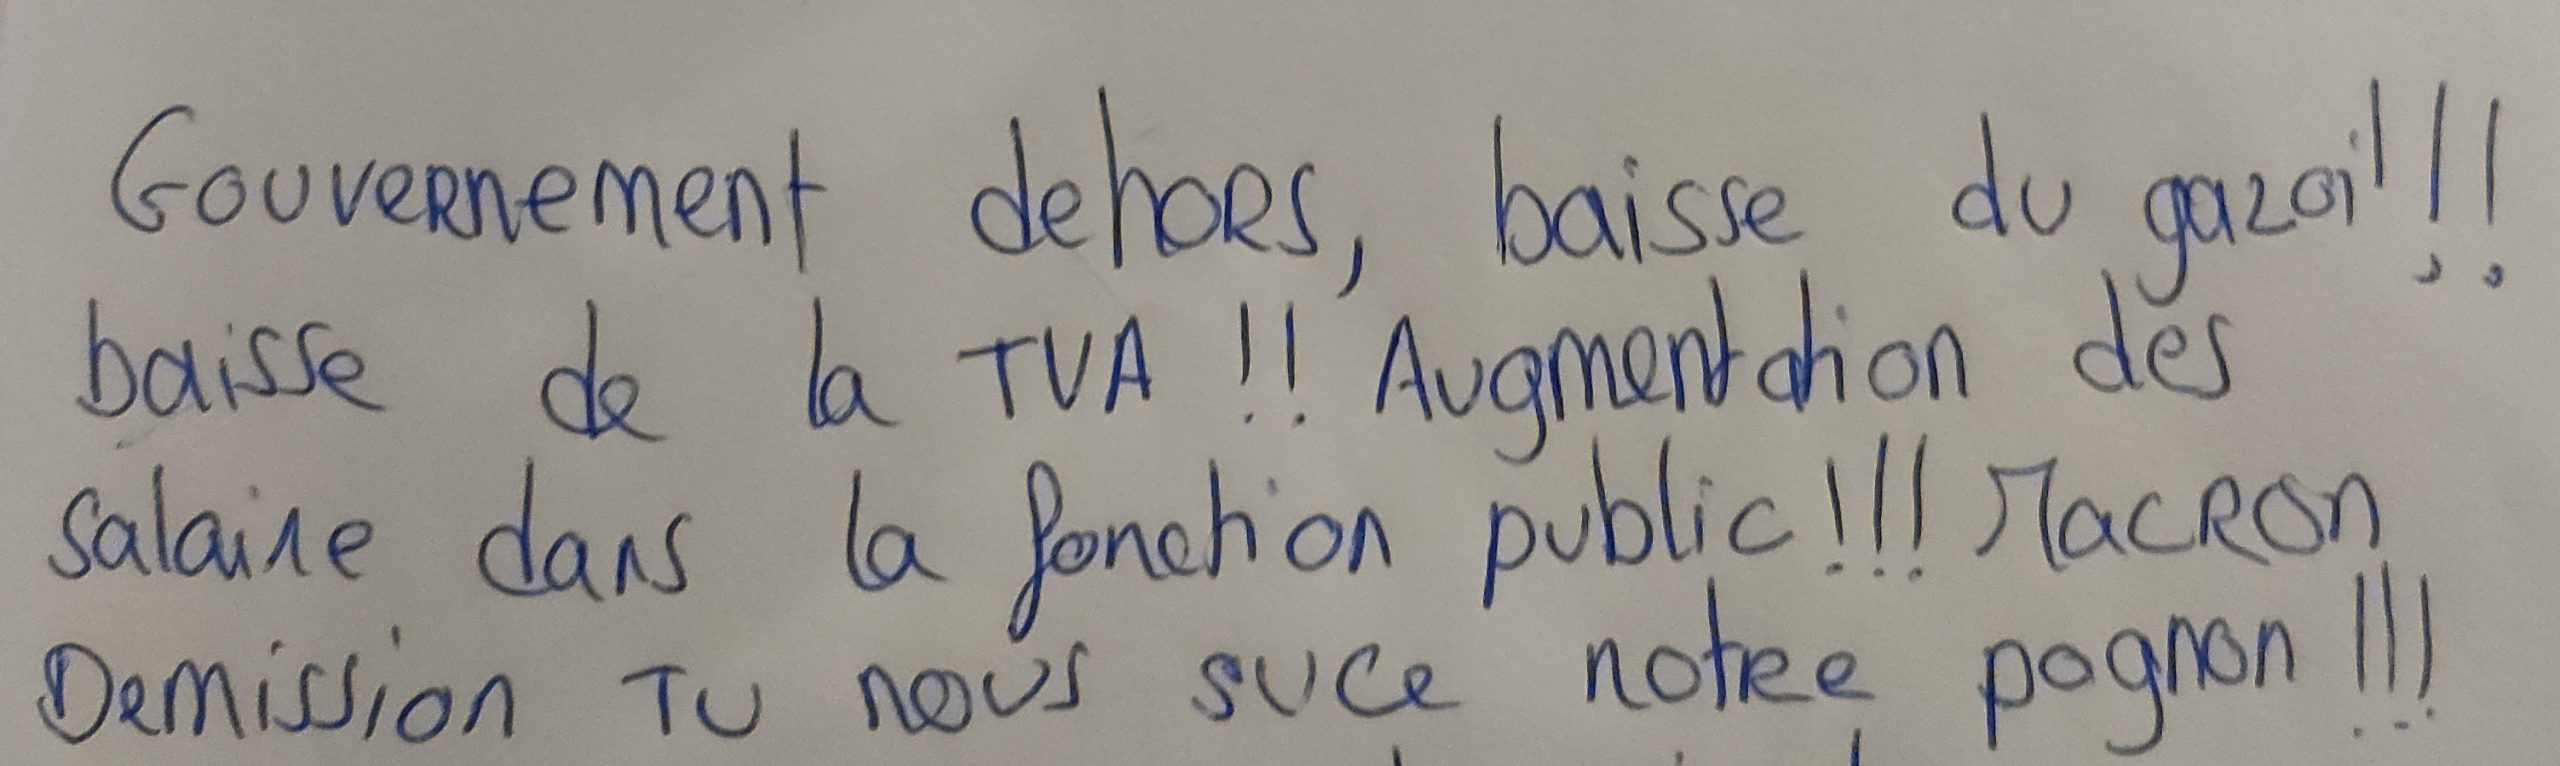 Gouvernement dehors, baisse du gazoil!!
baisse de la TVA !! Augmentation des
salaire dans la fonction public!!! Macron
Demission Tu nous suce notre pognon !!!